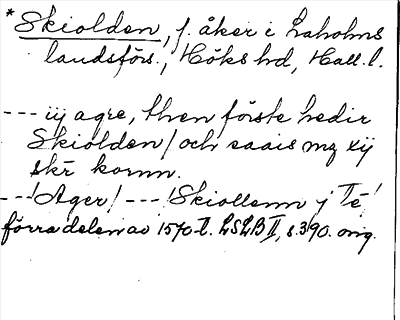 * Skiolden, f. åker i Laholms
landsförs., Höks hd, Hall. l.
--- iij agre, then förste hedir
Skiolden / och saais mz xij
skr kornn.
--- / Ager / --- / Skiollenn j Té /
förra delen av 1570-t. LSLB II, s. 390. orig.